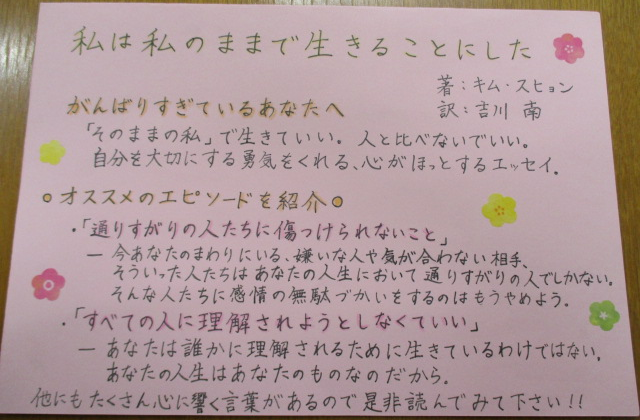 私は私のままで生きることにした
著：キム・スヒョン
訳：吉川 南
がんばりすぎているあなたへ
「そのままの私」で生きていい。人と比べないでいい。
自分を大切にする勇気をくれる、心がほっとするエッセイ.
○オススメのエピソードを紹介○
・「通りすがりの人たちに傷つけられないこと」
— 今あなたのまわりにいる、嫌いな人や気が合わない相手、
そういった人たちはあなたの人生において通りすがりの人でしかない。
そんな人たちに感情の無駄づかいをするのはもうやめよう。
・「すべての人に理解されようとしなくていい」
— あなたは誰かに理解されるために生きているわけではない。
あなたの人生はあなたのものなのだから。
他にもたくさん心に響く言葉があるので是非読んでみて下さい!!